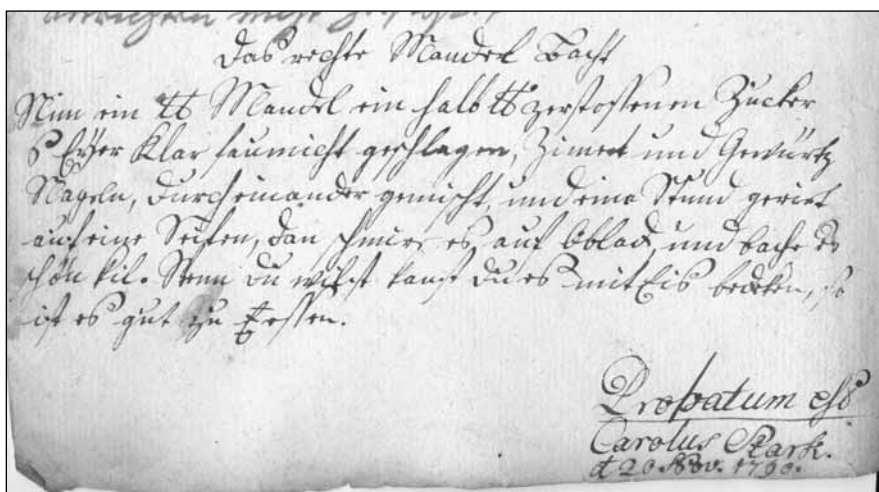 Das rechte Mandel Bacht
Nim ein ℔ Mandel ein halb ℔ zerstossenen Zucker
Eÿer Klar faumicht geschlagen, Zimet und Gewürtz
Nägeln, durcheinander gemischt, und eine Stund gerirt
auf eine Seiten, dan schmire es auf Oblad, und bache es
schön kil. Wenn du wilst kanst du es mit Eis bedeken, so
ist es gut zu Eessen.
Probatum est
Carolus Stark.
d 20 Nov. 1790.